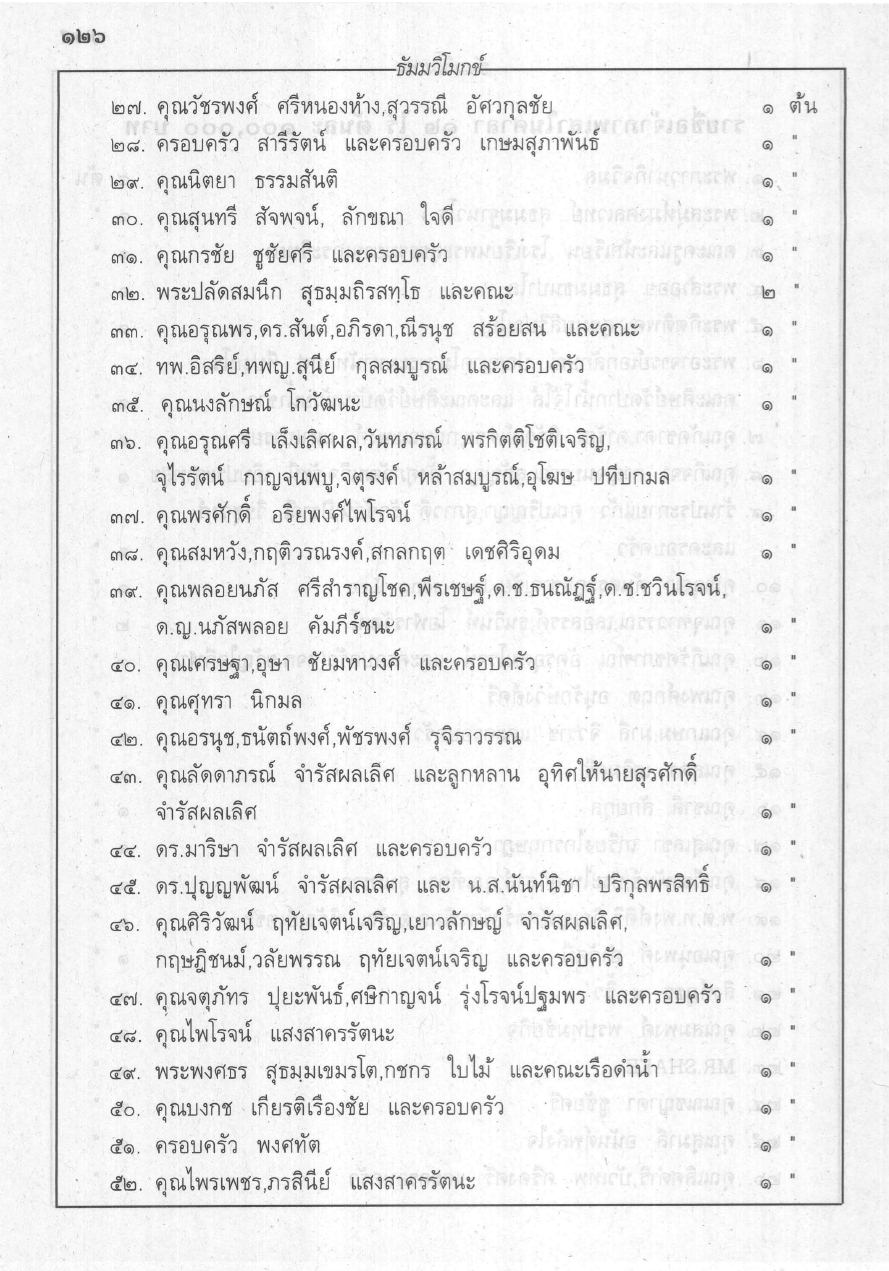 ๑๒๖
ธัมมวิโมกข์
๒๗. คุณวัชรพงศ์ ศรีหนองห้าง,สุวรรณี อัศวกุลชัย ๑ ต้น
๒๘. ครอบครัว สารีรัตน์ และครอบครัว เกษมสุภาพันธ์ ๑ "
๒๙. คุณนิตยา ธรรมสันติ ๑ "
๓๐. คุณสุนทรี สัจพจน์, ลักขณา ใจดี ๑ "
๓๑. คุณกรชัย ชูชัยศรี และครอบครัว ๑ "
๓๒. พระปลัดสมนึก สุธมฺมถิรสทฺโธ และคณะ ๒ "
๓๓. คุณอรุณพร,ดร.สันต์,อภิรดา,ณีรนุช สร้อยสน และคณะ ๑ "
๓๔. ทพ.อิสริย์,ทพญ.สุนีย์ กุลสมบูรณ์ และครอบครัว ๑ "
๓๕. คุณนงลักษณ์ โกวัฒนะ ๑ "
๓๖. คุณอรุณศรี เล็งเลิศผล,วันทภรณ์ พรกิตติโชติเจริญ,
จุไรรัตน์ กาญจนพบู,จตุรงค์ หล้าสมบูรณ์,อุโฆษ ปทีบกมล ๑ "
๓๗. คุณพรศักดิ์ อริยพงศ์ไพโรจน์ ๑ "
๓๘. คุณสมหวัง,กฤติวรณรงค์,สกลกฤต เดชศิริอุดม ๑ "
๓๙. คุณพลอยนภัส ศรีสำราญโชค,พีรเชษฐ์,ด.ช.ธนณัฏฐ์,ด.ช.ชวินโรจน์,
ด.ญ.นภัสพลอย คัมภีร์ชนะ ๑ "
๔๐. คุณเศรษฐา,อุษา ชัยมหาวงศ์ และครอบครัว ๑ "
๔๑. คุณศุทรา นิกมล ๑ "
๔๒. คุณอรนุช,ธนัตถ์พงศ์,พัชรพงค์ รุจิราวรรณ ๑ "
๔๓. คุณลัดดาภรณ์ จำรัสผลเลิศ และลูกหลาน อุทิศให้นายสุรศักดิ์
จำรัสผลเลิศ ๑ "
๔๔. ดร.มาริษา จำรัสผลเลิศ และครอบครัว ๑ "
๔๕. ดร.ปุญญพัฒน์ จำรัสผลเลิศ และ น.ส.นันท์นิชา ปริกุลพรสิทธิ์ ๑ "
๔๖. คุณศิริวัฒน์ ฤทัยเจตน์เจริญ,เยาวลักษญ์ จำรัสผลเลิศ,
กฤษฎิชนม์,วลัยพรรณ ฤทัยเจตน์เจริญ และครอบครัว ๑ "
๔๗. คุณจตุภัทร ปุยะพันธ์,ศษิกาญจน์ รุ่งโรจน์ปฐมพร และครอบครัว ๑ "
๔๘. คุณไพโรจน์ แสงสาครรัตนะ ๑ "
๔๙. พระพงศธร สุธมฺมเขมรโต,กชกร ใบไม้ และคณะเรือดำน้ำ ๑ "
๕๐. คุณบงกช เกียรติเรืองชัย และครอบครัว ๑ "
๕๑. ครอบครัว พงศทัต ๑ "
๕๒. คุณไพรเพชร,ภรสินีย์ แสงสาครรัตนะ ๑ "